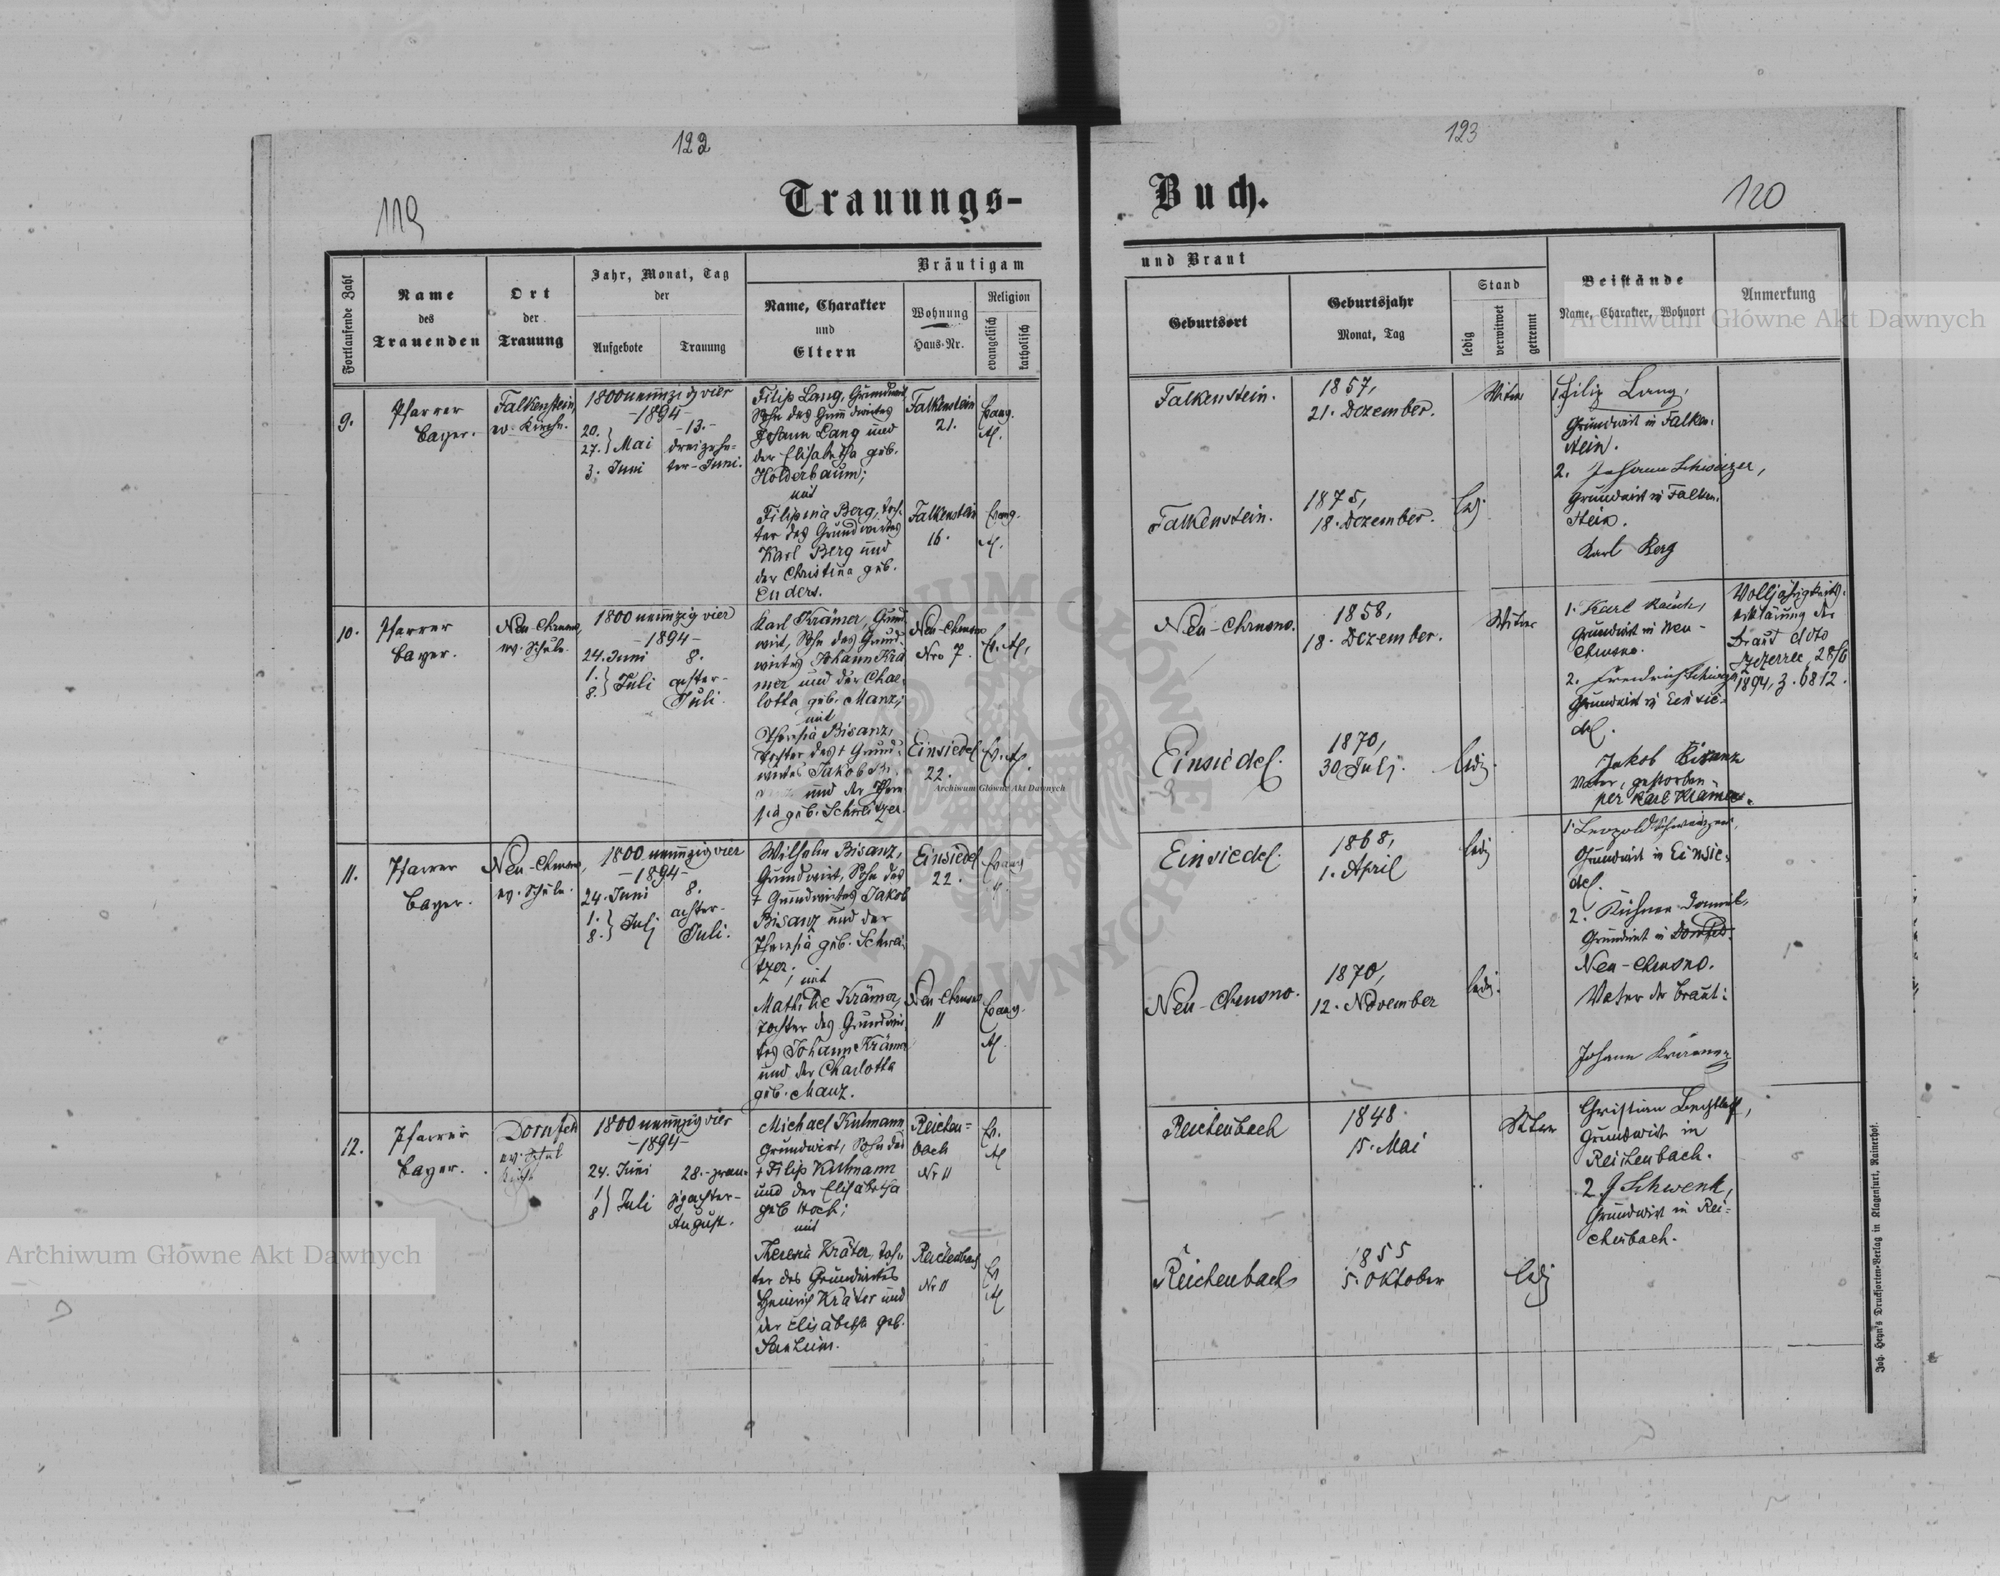 122
123
119
Trauungs-
Buch.
120
Fortlaufende Zahl
Name
des
Trauenden
Ort
der
Trauung
Jahr, Monat, Tag
der
Aufgebote
Trauung
Bräutigam
Name, Charakter
und
Eltern
Wohnung
Haus-Nr.
Religion
evangelisch
katholisch
und Braut
Geburtsort
Geburtsjahr
Monat, Tag
Stand
ledig
verwitwet
getrennt
Beistände
Name, Charakter, Wohnort
Anmerkung
9.
Pfarrer
Bayer.
Falkenstein,
ev. Kirche.
1800 neunzig vier
-1894-
20.
27. } Mai
3. Juni
-13.-
dreizehn-
ter-Juni.
Filip Lang, Grundwirt,
Sohn des Grundwirtes
Johann Lang und
der Elisabetha geb.
Holderbaum;
mit
Filipina Berg, Toch-
ter des Grundwirtes
Karl Berg und
der Christina geb.
Enders.
Falkenstein
21.
Falkenstein
16.
Evang.
A.
Evang.
A.
Falkenstein.
1857,
21. Dezember.
Witwer
Falkenstein.
1875,
18. Dezember.
led.
1. Filip Lang,
Grundwirt in Falken-
stein.
2. Johann Schweizer,
Grundwirt in Falken-
stein.
Karl Berg
10.
Pfarrer
Bayer.
Neu-Chrusno,
ev. Schule.
1800 neunzig vier
-1894-
24. Juni
1.
8. } Juli
8.
achter-
Juli.
Karl Krämer, Grund-
wirt, Sohn des Grund-
wirtes Johann Krä
mer und der Char-
lotta geb. Manz;
mit
Theresia Bisanz,
Tochter des † Grund-
wirtes Jakob Bi-
und der There
sia geb. Schweitzer.
Neu-Chrusno
Nro 7.
Einsiedel
22.
Ev. A.
Ev. A.
Neu-Chrusno.
1858,
18. Dezember.
Witwer
Einsiedel.
1870,
30 Juli.
ledig.
1. Karl Rauch,
Grundwirt in Neu-
Chrusno.
2. Friedrich
Grundwirt in Einsie-
del.
Jakob Bisanz
Vater, gestorben
per Karl Krämer.
Volljährigkeits-
erklärung der
Braut ddto
Szczerzec, 28/6
1894, Z. 6812.
11.
Pfarrer
Bayer.
Neu-Chrusno,
ev. Schule.
1800 neunzig vier
-1894-
24. Juni
1.
8. } Juli
8.
achter-
Juli.
Wilhelm Bisanz,
Grundwirt, Sohn des
† Grundwirtes Jakob
Bisanz und der
Theresia geb. Schwei
tzer;
mit
Mathilde Krämer,
Tochter des Grundwir-
tes Johann Krämer
und der Charlotta
geb. Manz.
Einsiedel
22.
Neu-Chrusno
11
Evang
A.
Evang.
A.
Einsiedel.
1868,
1. April
ledig
Neu-Chrusno.
1870,
12. November
ledig.
1. Leopold Schweitzer,
Grundwirt in Einsie-
del.
2. Kühner Daniel,
Grundwirt in Dornfeld.
Neu-Chrusno.
Vater der Braut:
Johann Krämer
12.
Pfarrer
Bayer.
Dornfeld
ev.
1800 neunzig vier
-1894-
24. Juni
1
8 } Juli
28.-zwan-
zigachter-
August.
Michael Kulmann
Grundwirt, Sohn des
† Filip Kulmann
und der Elisabetha
geb. Koch;
mit
Theresia Kräter, Toch-
ter des Grundwirtes
Heinrich Kräter und
der Elisabetha geb.
Reichen-
bach
Nr 11
Reichenbach
Nr 11
Ev.
A
Ev
A
Reichenbach
1848.
15. Mai
Witwer
Reichenbach
1855
5. Oktober
ledig
Christian Bechtloff,
Grundwirt in
Reichenbach.
2. J Schwenk,
Grundwirt in Rei-
chenbach.
Joh. Heyn's Drucksorten-Verlag in Klagenfurt, Rainerhof.
Archiwum Główne Akt Dawnych
Archiwum Główne Akt Dawnych
Archiwum Główne Akt Dawnych